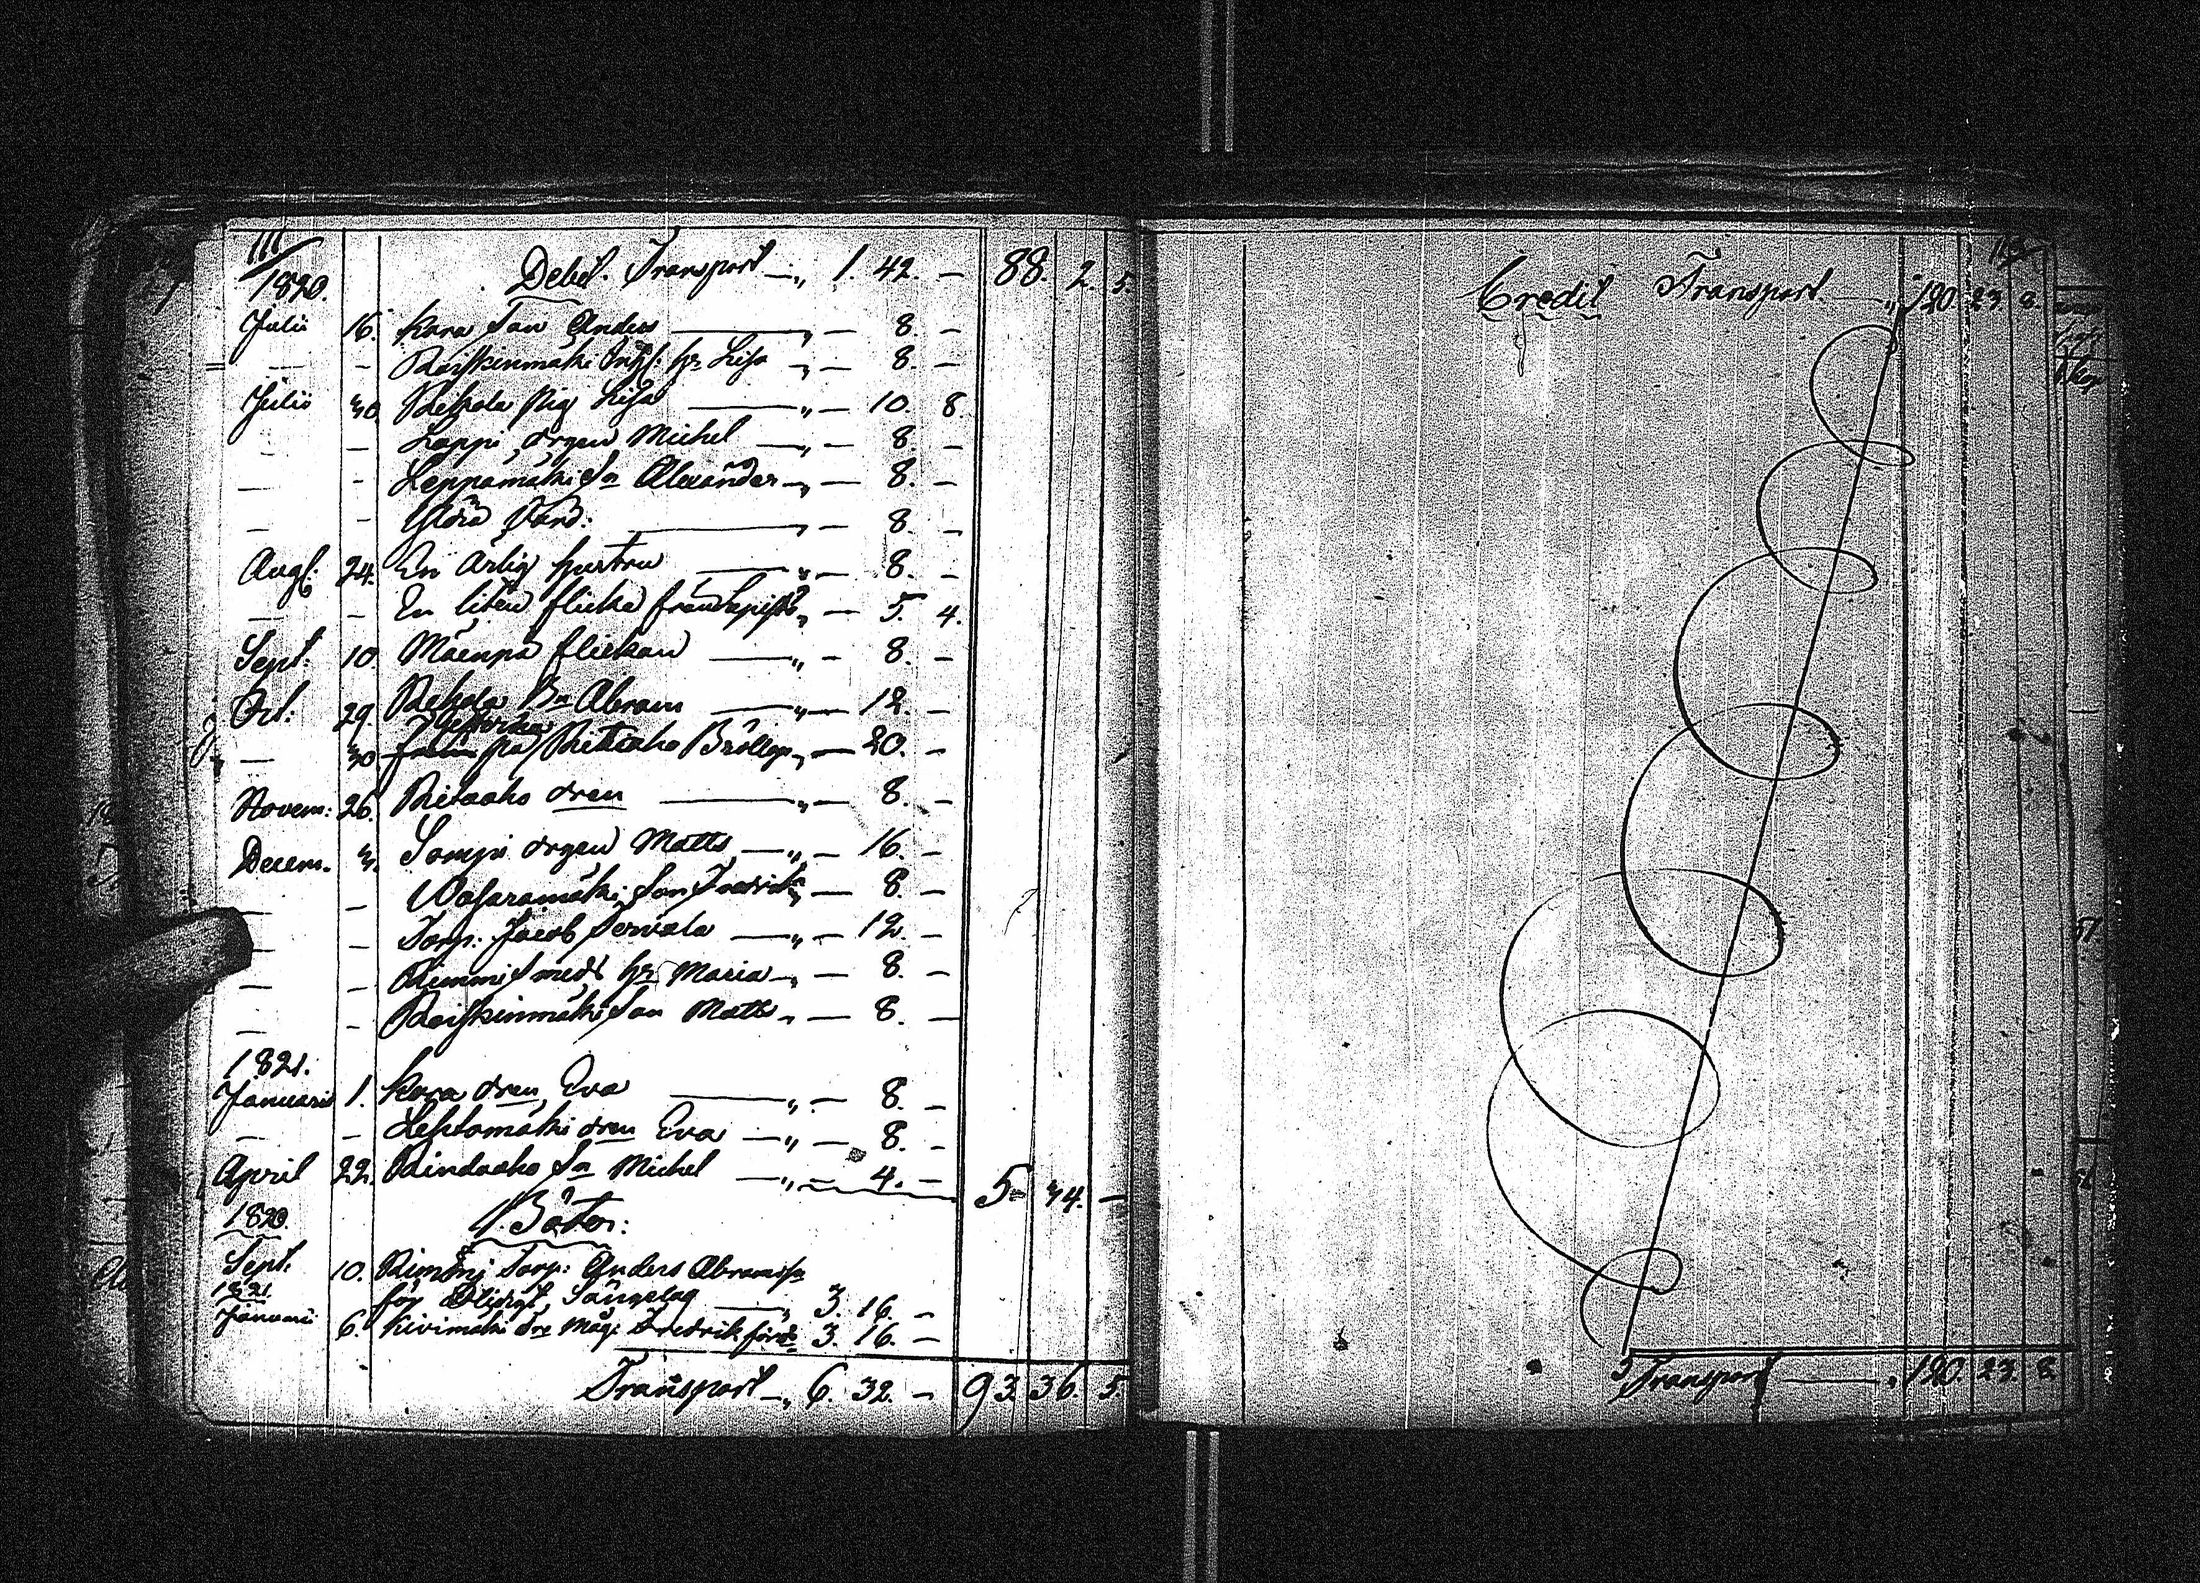 111
1820. Debet. Transport 1. 42. — 88. 2. 5.
Julii 16. Kara Son Anders — 8. —
— — Raiskinmäki Inhys. hr. Lisa — 8. —
Julii 30. Rekola Pig Lisa — 10. 8.
— Lappi drgen Michel — 8. —
— - Leppämäki Sn Alexander — 8. —
— - — 8. —
Aug. 24. En ärlig hustru — 8. —
— - En liten flicka från — 5. 4.
Sept. 10 Mäenpä flickan — 8. —
Oct: 29. Rekola Bn Abram — 12. —
— 30 på Ritiaho Bröllop — 20. —
Novem: 26. Ritaaho dren — 8. —
Decem. 3. Sompi drgen Matts — 16. —
— — Wasaramäki Son Fredrik — 8. —
— — Torp: Jacob Perväla — 12. —
— — Rimmi Smeds hr Maria — 8. —
— - Raiskinmäki Son Matts — 8. —
1821.
Januarii 1. Kara dren Eva — 8. —
— - Lehtomäki dren Eva — 8. —
April 22. Rindaaho Sn Michel — 4. — 5 34. —
1820. Böter:
Sept. 10. Rimmi Torp: Anders Abramss.
1821. för Olidigt Sängelag 3. 16. —
Januari 6. Kivimäki dre Måg: Fredrik 3. 16. —
Transport 6. 32. — 93. 36. 5.
Credit Transport 120. 23. 8.
Transport 120. 23. 8.